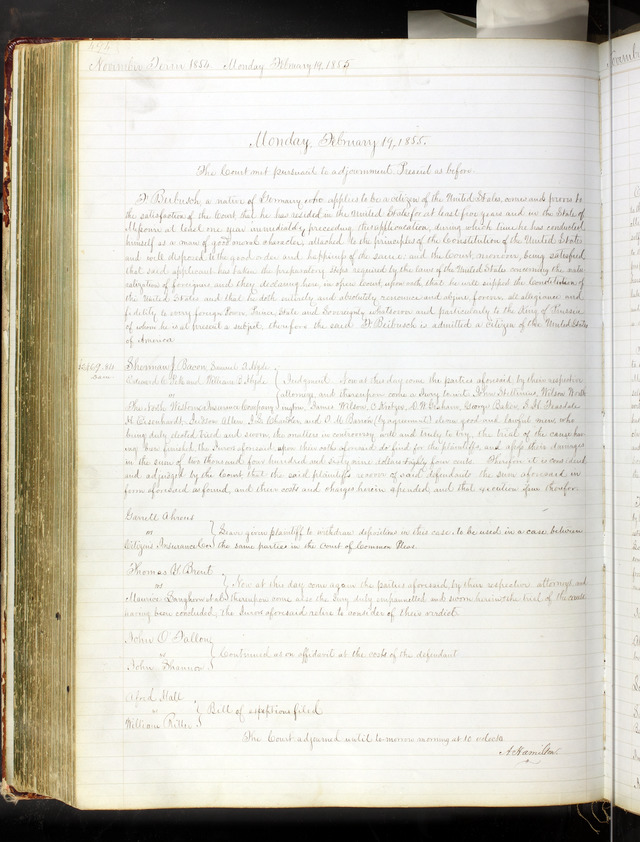 424
November Term 1854 Monday February 19, 1855
Monday February 19, 1855.
The Court met pursuant to adjournment Present as before.
F. Beibusch a native of Germany who applies to be a citizen of the United States, comes and proves to
the satisfaction of the Court that he has resided in the United States for at least five years and in the State of
Missouri at least one year immediately preceding this application, during which time he has conducted
himself as a man of good moral character, attached to the principles of the Constitution of the United States
and well disposed to the good order and happiness of the same; and the Court, moreover, being satisfied
that said applicant has taken the preparatory steps required by the laws of the United States concerning the natu-
ralization of foreigners and they declaring here, in open Court, upon oath that he will support the Constitution of
the United States and that he doth entirely and absolutely renounce and abjure forever all allegiance and
fidelity to every foreign Power, Prince State and Sovereignty whatsoever and particularly to the King of Prussia
of whom he is at present a subject therefore the said F. Beibusch is admitted a citizen of the United States
of America
Sherman J Bacon Samuel D Hyde
Edward C Pike and William T Hyde Judgment Now at this day come the parties aforesaid, by their respective
vs attorneys and thereupon come a Jury to wit: John Wilson North
The North Western Insurance Company James Wilson, George Baker
H Eisenhardt, Gideon Allen and (by agreement) twelve good and lawful men who
being duly elected tried and sworn the matters in controversy well and truly to try, the trial of the cause hav-
ing been finished the Jurors aforesaid upon their oaths aforesaid do find for the plaintiffs and assess their damages
in the sum of two thousand four hundred and sixty nine dollars eighty four cents. Therefore it is considered
and adjudged by the Court that the said plaintiffs recover of said defendants the sum aforesaid in
form aforesaid as found, and their costs and charges herein expended, and that execution issue therefor.
Garrett Ahrens
vs Leave given plaintiff to withdraw depositions in this case, to be used in a case between
Citizens Insurance Co the same parties in the Court of Common Pleas.
Thomas H Brent
vs Now at this day come again the parties aforesaid, by their respective attorneys, and
Maurice et als thereupon come also the Jury duly empannelled and sworn herein; the trial of the cause
having been concluded, the Jurors aforesaid retire to consider of their verdict.
John O Fallon
vs Continued as on affidavit at the costs of the defendant
John Shannon
Hall
vs Bill of exceptions filed
William Ritter
The Court adjourned until to-morrow morning at 10 oclock
A. Hamilton